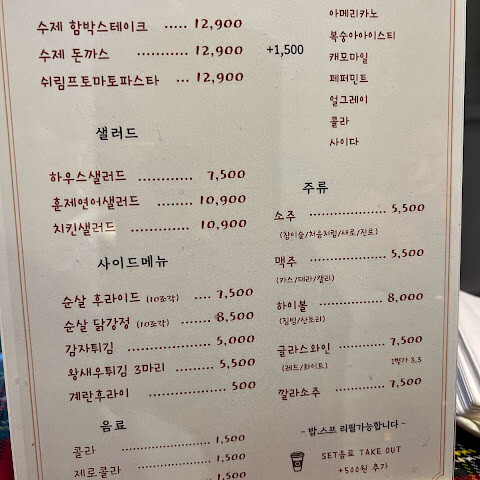 수제 함박스테이크 ..... 12,900
수제 돈까스 ............ 12,900
쉬림프토마토파스타 ... 12,900
+1,500
아메리카노
복숭아아이스티
캐모마일
페퍼민트
얼그레이
콜라
사이다
샐러드
하우스샐러드 ............ 7,500
훈제연어샐러드 ......... 10,900
치킨샐러드 ............... 10,900
사이드메뉴
순살 후라이드 (10조각) .... 7,500
순살 닭강정 (10조각) ....... 8,500
감자튀김 ................ 5,000
왕새우튀김 3마리 ........ 5,500
계란후라이 ................ 500
음료
콜라 ..................... 1,500
제로콜라 ................ 1,500
1,500
주류
소주 ................... 5,500
(참이슬/처음처럼/새로/진로)
맥주 ................... 5,500
(카스/테라/켈리)
하이볼 ................ 8,000
(짐빔/산토리)
글라스와인 ............ 7,500
(레드/화이트)
깔라소주 ............... 7,500
- 밥,스프 리필가능합니다 -
SET음료 TAKE OUT
+500원 추가